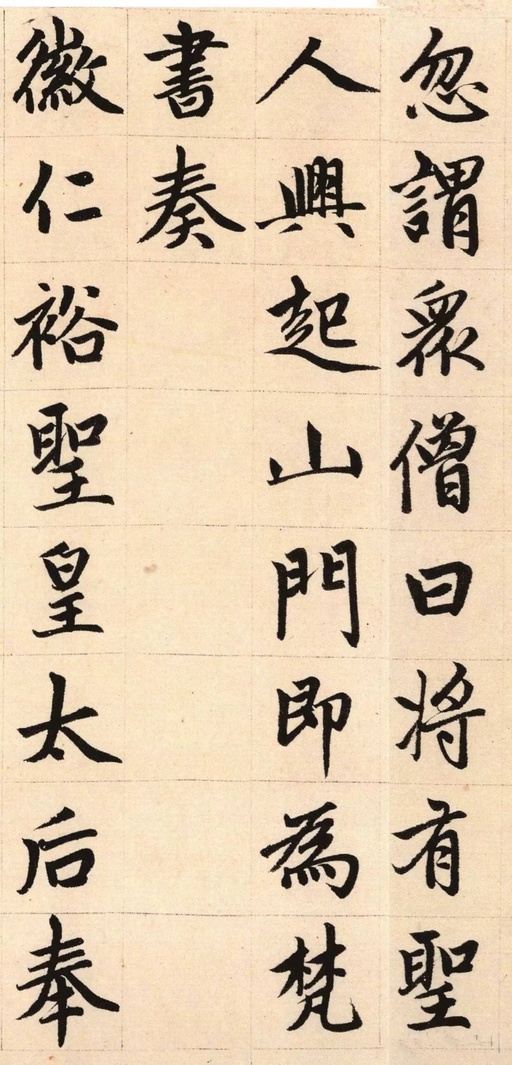 忽謂眾僧曰將有聖
人興起山門即為梵
書奏
徽仁裕聖皇太后奉